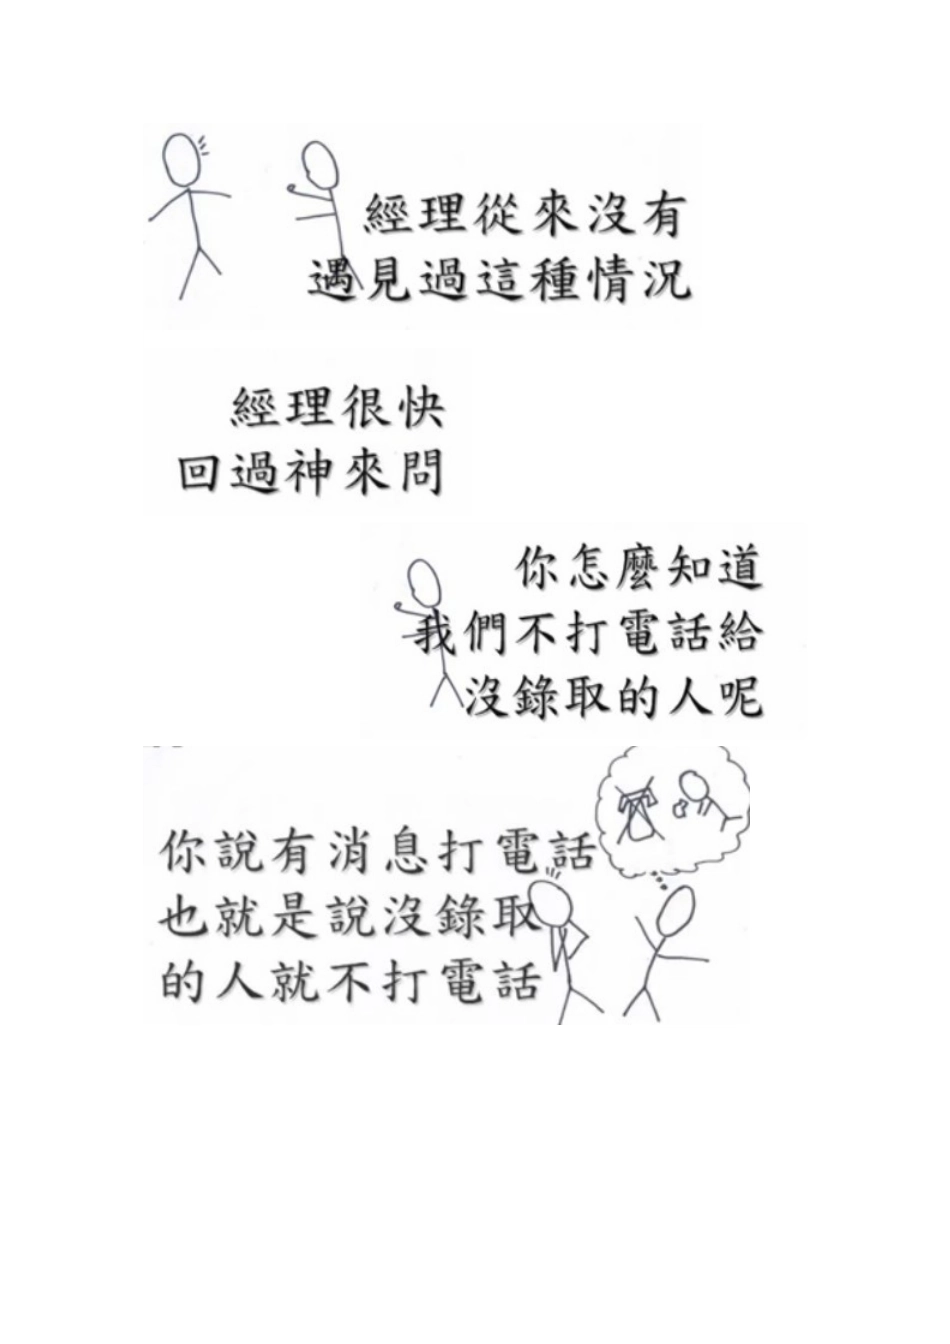 經理從來沒有
遇見過這種情況
經理很快
回過神來問
你怎麼知道
我們不打電話給
沒錄取的人呢
你說有消息打電話
也就是說沒錄取
的人就不打電話